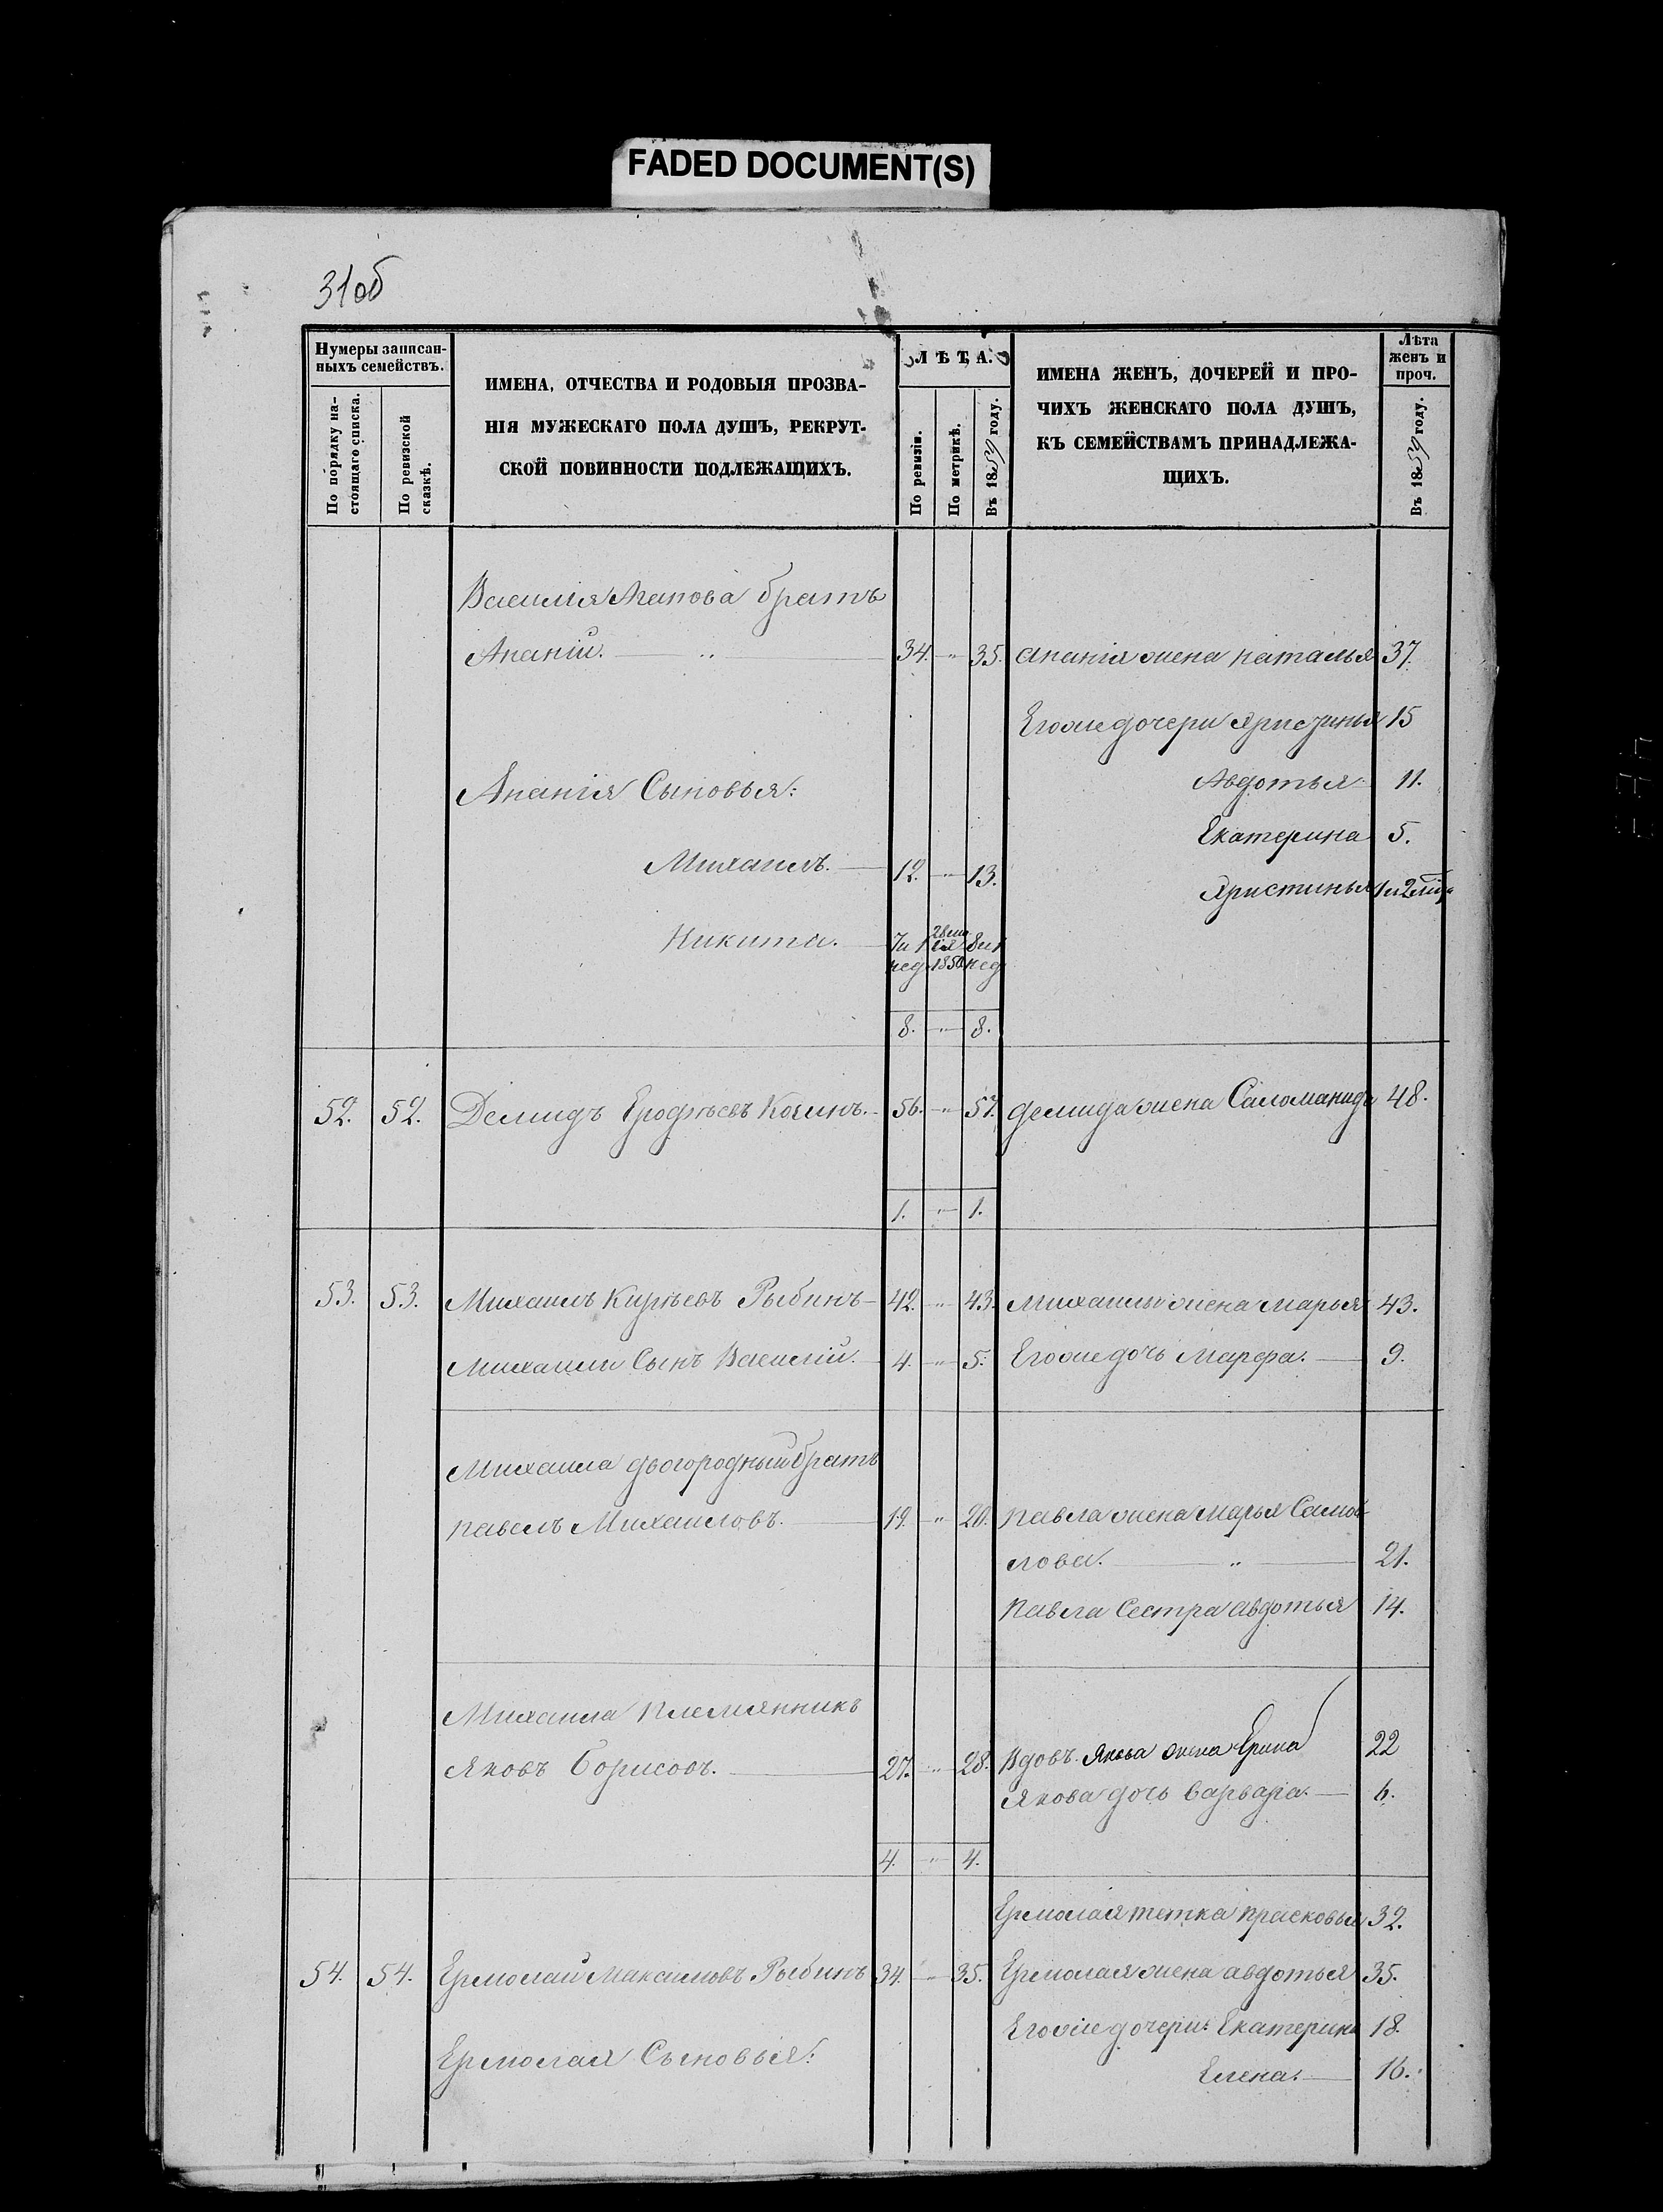 FADED DOCUMENT(S)
31об
Нумеры записан-
ныхъ семействъ.
По порядку на-
стоящаго списка.
По ревизской
сказкѣ.
ИМЕНА, ОТЧЕСТВА И РОДОВЫЯ ПРОЗВА-
НІЯ МУЖЕСКАГО ПОЛА ДУШЪ, РЕКРУТ-
СКОЙ ПОВИННОСТИ ПОДЛЕЖАЩИХЪ.
ЛѢТА.
По ревизіи.
По метрикѣ.
Въ 1859 году.
ИМЕНА ЖЕНЪ, ДОЧЕРЕЙ И ПРО-
ЧИХЪ ЖЕНСКАГО ПОЛА ДУШЪ,
КЪ СЕМЕЙСТВАМЪ ПРИНАДЛЕЖА-
ЩИХЪ.
Лѣта
женъ и
проч.
Въ 1859 году.
Василія Агапова братъ
Ананій. — „ — 34. „ 35. Ананія жена наталья 37.
Егоже дочери Христинья 15
Ананія Сыновья: Авдотья 11.
Екатерина 5.
Михаилъ. — 12. „ 13.
Христинья 1 и 2 мѣс
Никита. — 7 и 1 8 и 1
нед 1850 нед
8. „ 8.
52. 52. Демидъ Ерофѣевъ Косинъ. 56. „ 57. Демида жена Саломанида 48.
1. „ 1.
53. 53. Михаилъ Кирѣевъ Рыбинъ 42. „ 43. Михаилы жена марья 43.
Михаилы Сынъ Василій. 4. „ 5. Егоже дочь Марфа. — 9.
Михаила двогородный братъ
павелъ Михаиловъ. — 19. „ 20. павла жена марья Самой-
лова. — „ — 21.
павла Сестра авдотья 14.
Михаила племянникъ
Яковъ Борисовъ. — 27. „ 28. Вдовъ. Якова жена Ерина 22
Якова дочь варвара. — 6.
4. „ 4.
Ермолая тетка прасковья 32.
54. 54. Ермолай Максимовъ Рыбинъ 34. „ 35. Ермолая жена авдотья 35.
Егоже дочери: Екатерина 18.
Ермолая Сыновья:
Елена. — 16.